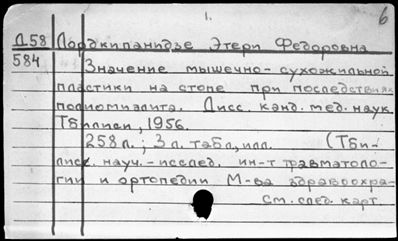 1. 6
Д58 Лордкипанидзе Этери Федоровна
584 Значение мышечно-сухожильной
пластики на стопе при последствиях
полиомиэлита. Дисс. канд. мед. наук.
Тбилиси, 1956.
258 л.; 3 л. табл., илл. (Тби-
лисс. науч.-исслед. ин-т травматоло-
гии и ортопедии М-ва здравоохра-
См. след. карт.